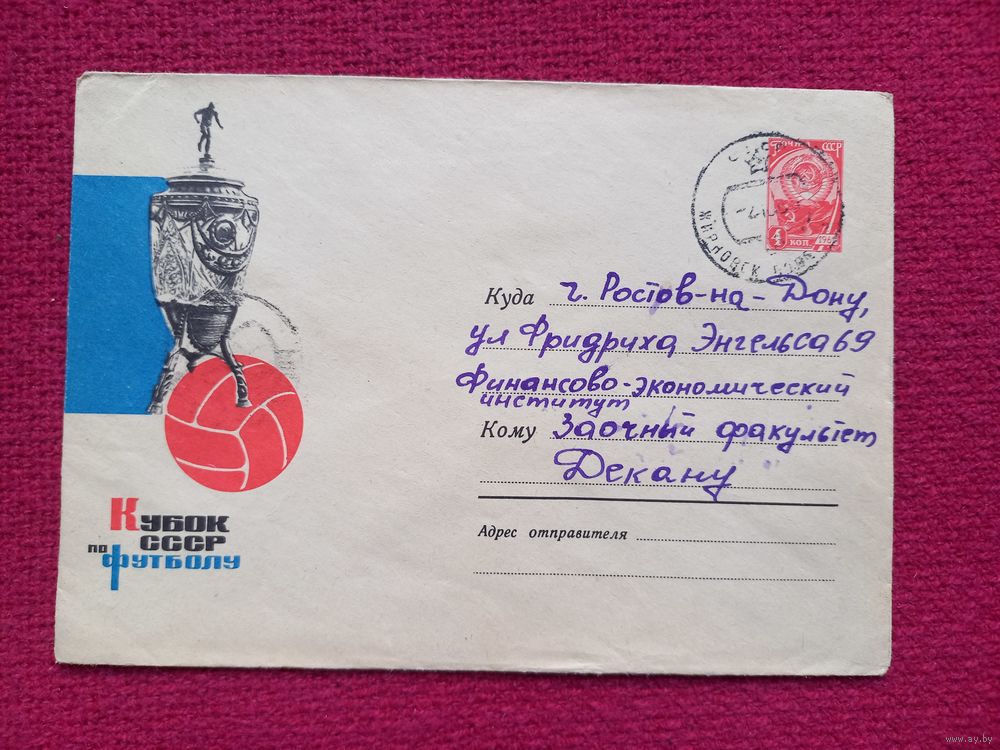 ПОЧТА СССР
4
КОП.
ЖИРНОВСК
Куда г. Ростов-на-Дону,
ул Фридриха Энгельса 69
Финансово-экономический
институт
Кому Заочный факультет
Декану
Адрес отправителя
Кубок
СССР
по
футболу
www.ay.by